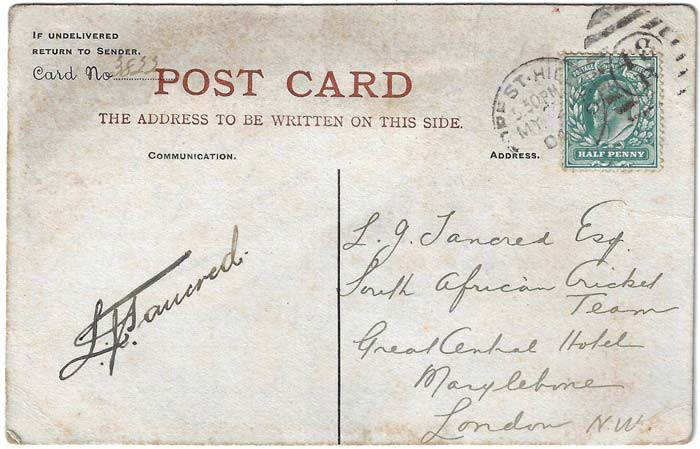 IF UNDELIVERED
RETURN TO SENDER.
Card No 3833
POST CARD
THE ADDRESS TO BE WRITTEN ON THIS SIDE.
COMMUNICATION.
ADDRESS.
HALF PENNY
L. J. Tancred Esq.
South African Cricket
Team
Great Central Hotel
Marylebone
London N.W.
L. J. Tancred.